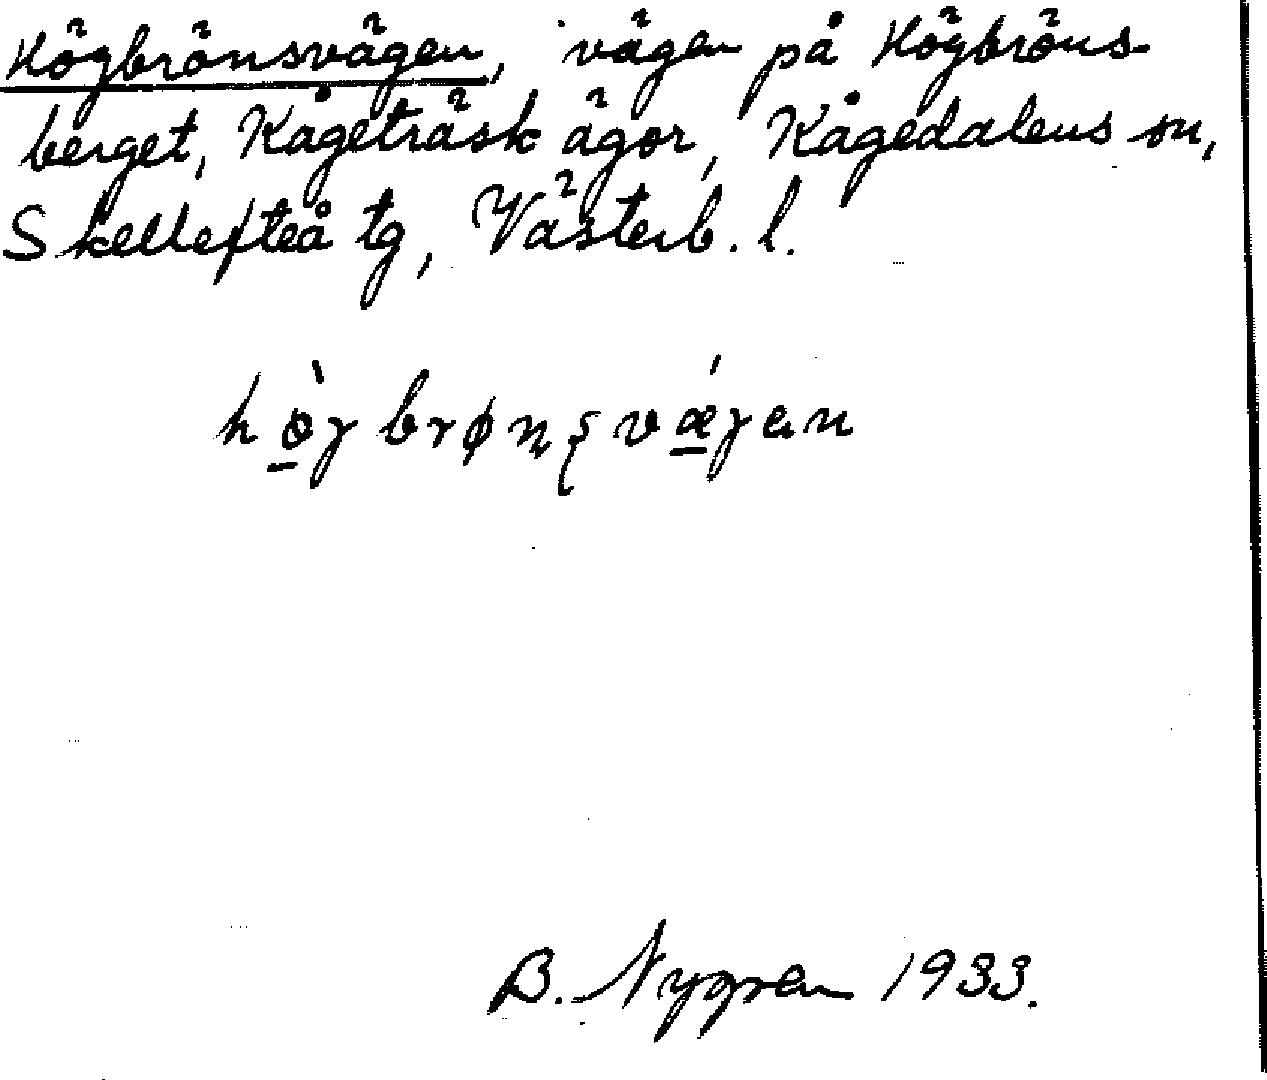 Högbrönsvägen, vägen på Högbröns-
berget, Kågeträsk ägor, Kågedalens sn,
Skellefteå tg, Västerb. l.
hö̀gbrønsvǽgen
B. Nygren 1933.